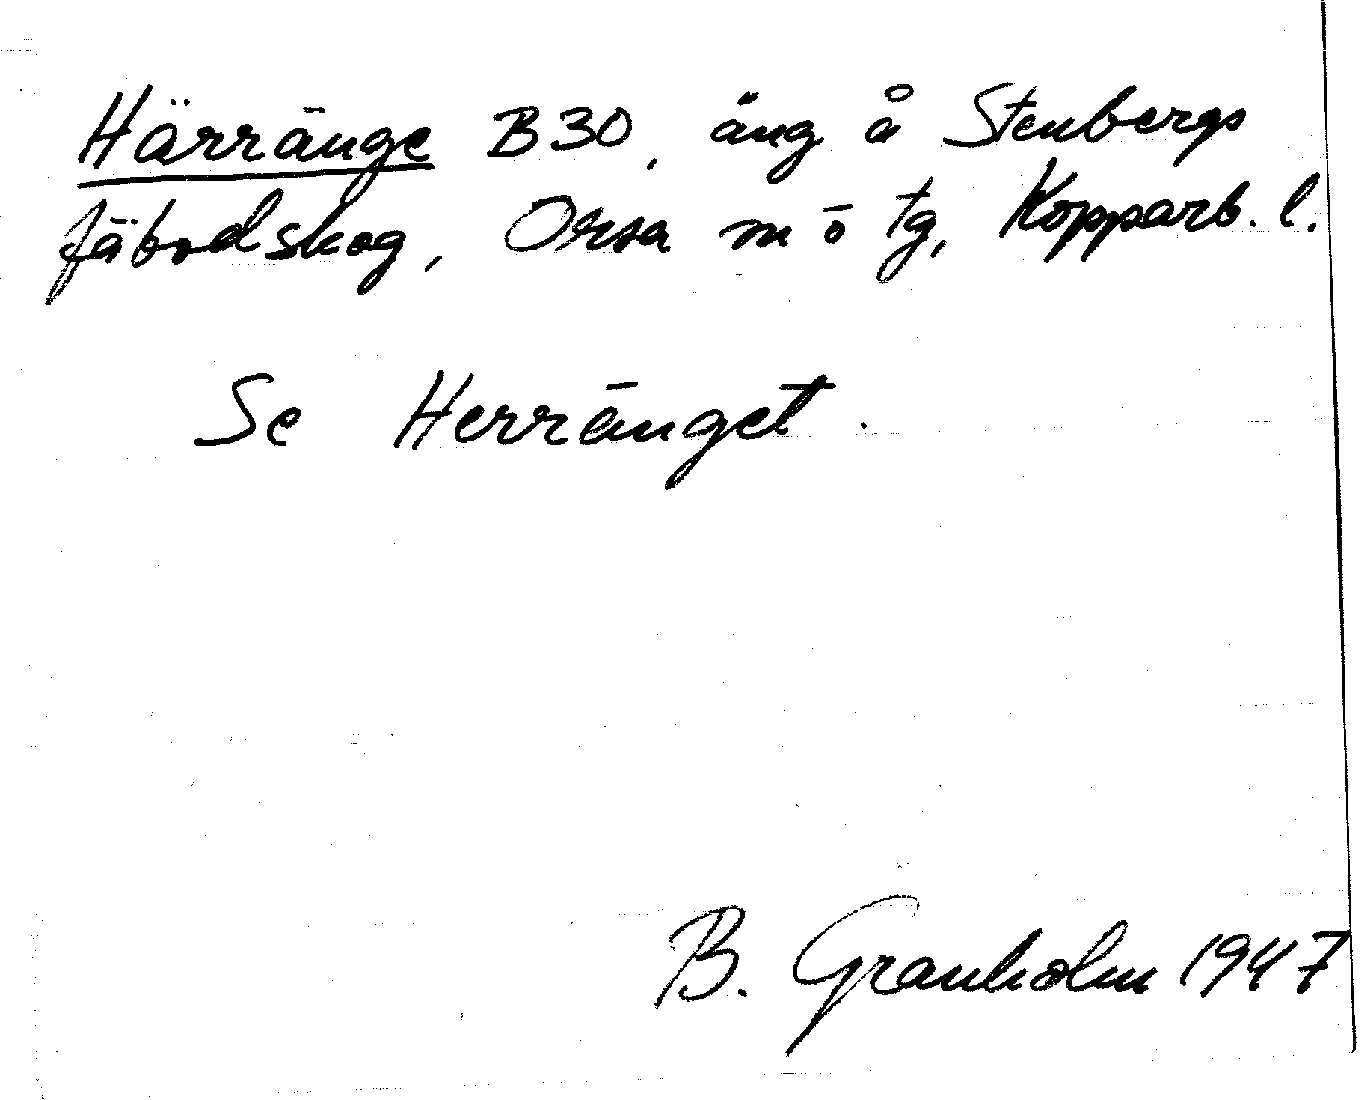 Härränge B30, äng å Stenbergs
fäbodskog, Orsa m ö tg, Kopparb. l.
Se Herränget.
B. Granholm 1947